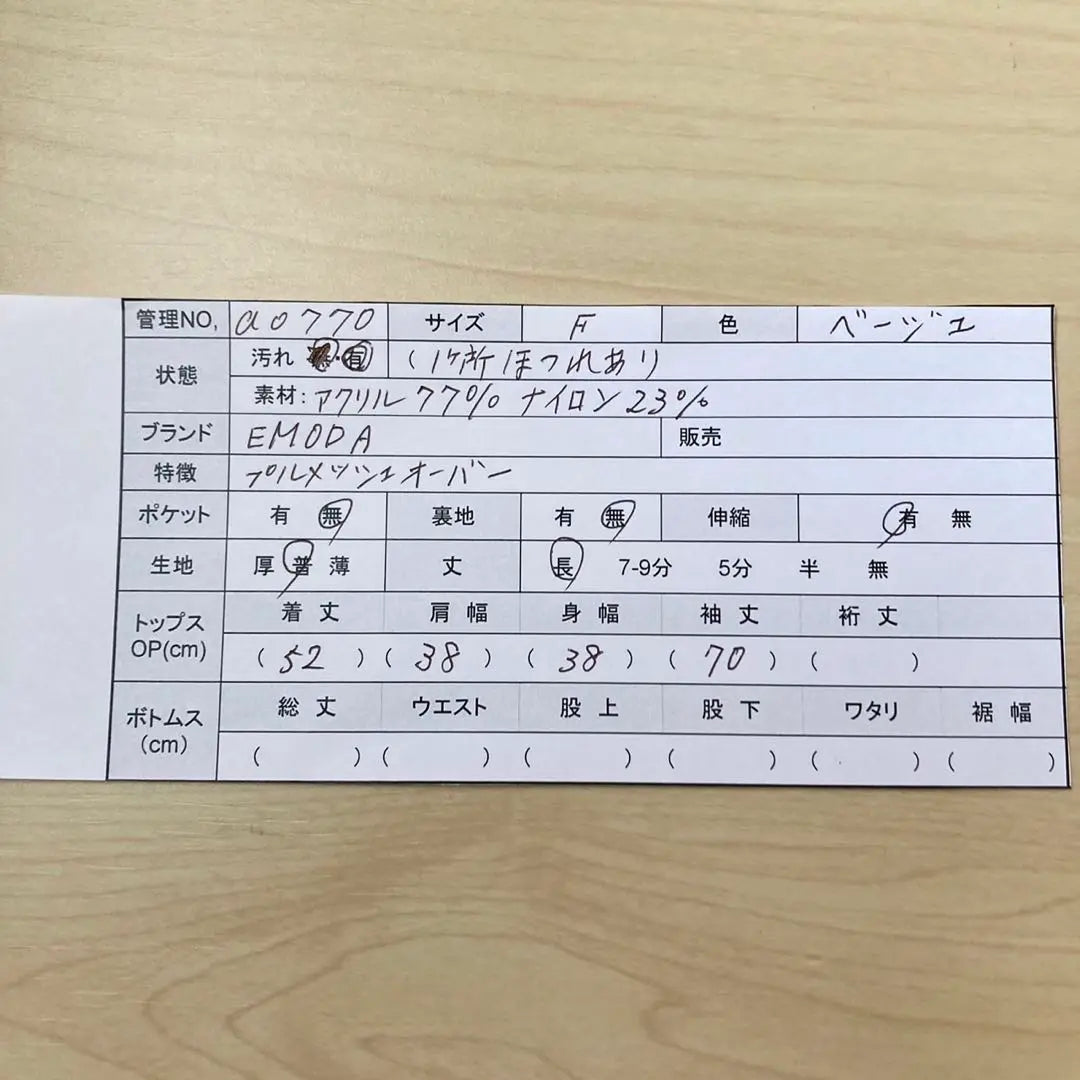 管理NO, a0770 サイズ F 色 ベージュ
状態 汚れ 無・有 (1ケ所ほつれあり
素材: アクリル77% ナイロン23%
ブランド EMODA 販売
特徴 プルメッシュオーバー
ポケット 有 無 裏地 有 無 伸縮 有 無
生地 厚 普 薄 丈 長 7-9分 5分 半 無
トップス OP(cm) 着丈 肩幅 身幅 袖丈 裄丈
(52) (38) (38) (70) ( )
ボトムス (cm) 総丈 ウエスト 股上 股下 ワタリ 裾幅
( ) ( ) ( ) ( ) ( ) ( )